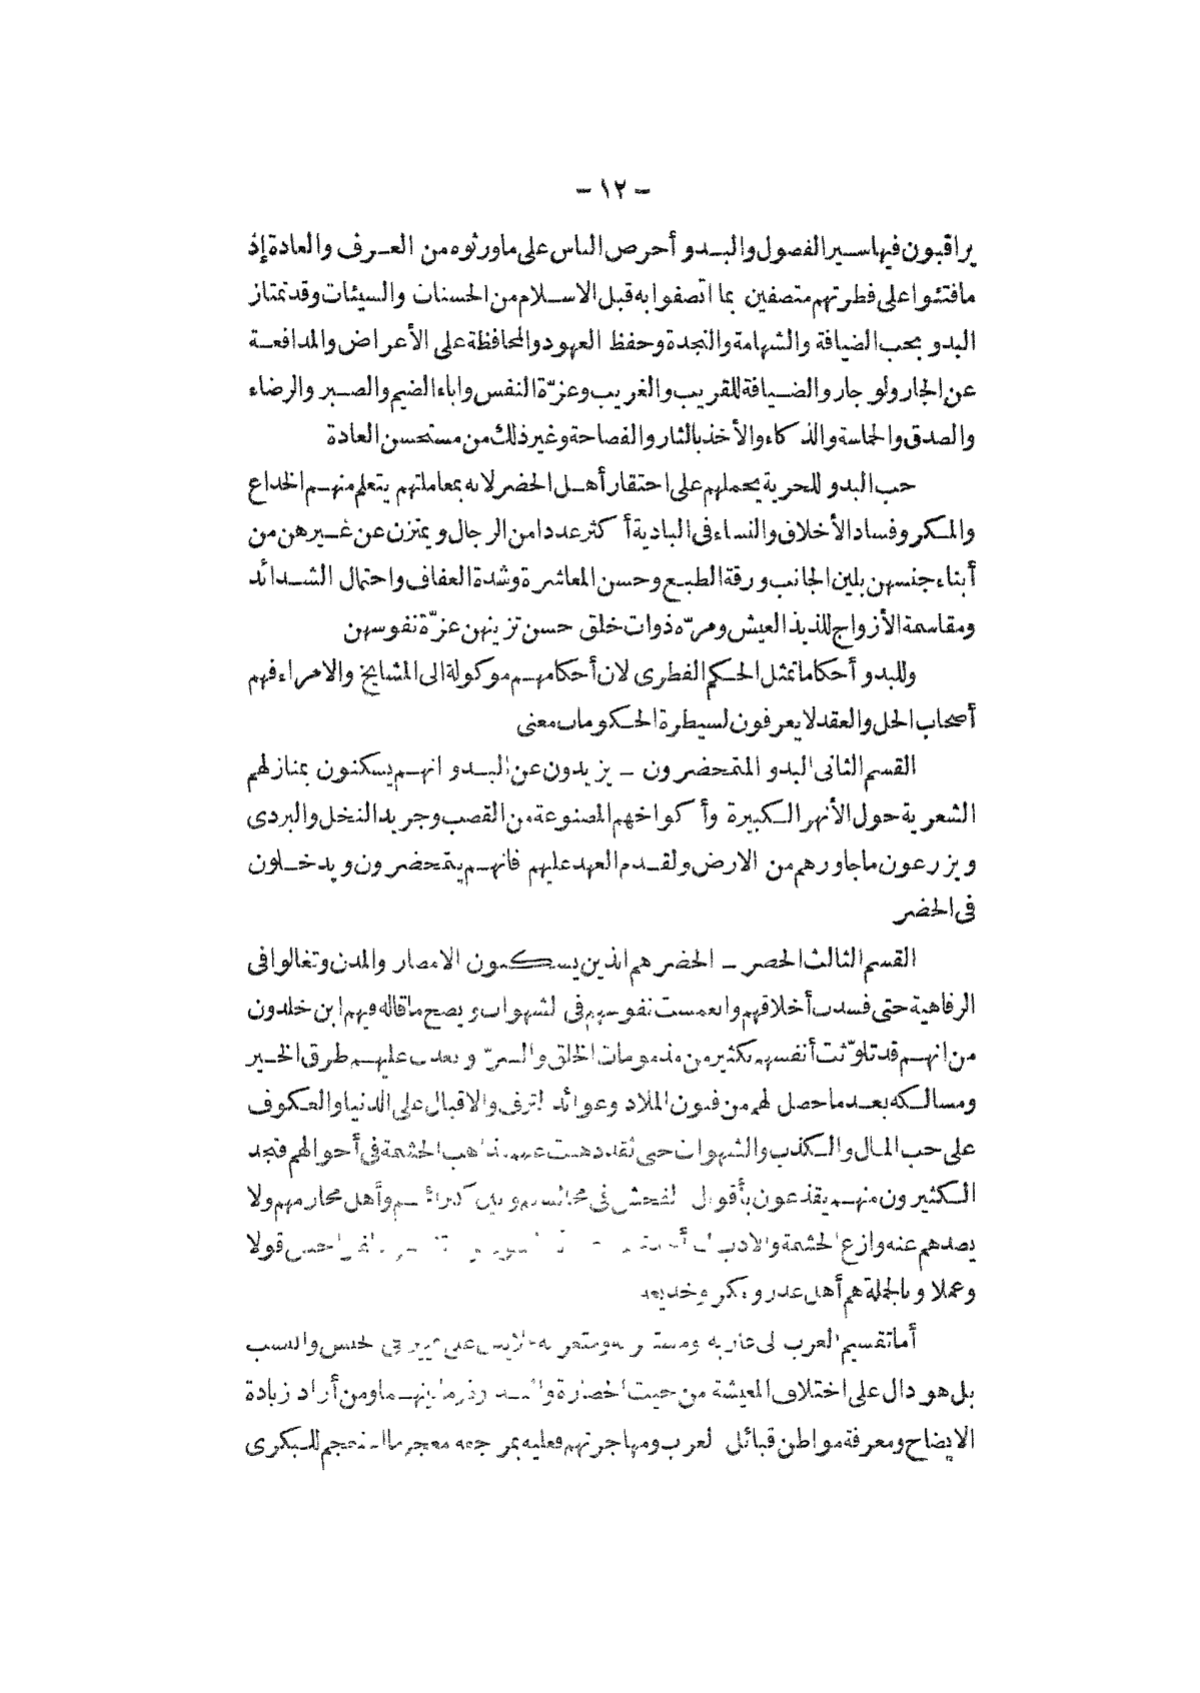 – ١٢ –
يراقبون فيها سير الفصول والبدو أحرص الناس على ماورثوه من العرف والعادة إذ
مافتئوا على فطرتهم متصفين بما اتصفوا به قبل الاسلام من الحسنات والسيئات وقد تمتاز
البدو بحب الضيافة والشهامة والنجدة وحفظ العهود والمحافظة على الأعراض والمدافعة
عن الجار ولو جار والضيافة للقريب والغريب وعزّة النفس واباء الضيم والصبر والرضاء
والصدق والحماسة والذكاء والأخذ بالثار والفصاحة وغير ذلك من مستحسن العادة
حب البدو للحرية يحملهم على احتقار أهل الحضر لانه بمعاملتهم يتعلم منهم الخداع
والمكر وفساد الأخلاق والنساء فى البادية أكثر عددا من الرجال ويمتزن عن غيرهن من
أبناء جنسهن بلين الجانب ورقة الطبع وحسن المعاشرة وشدة العفاف واحتمال الشدائد
ومقاسمة الأزواج للذيذ العيش ومرّه ذوات خلق حسن تزينهن عزّة نفوسهن
وللبدو أحكاما تمثل الحكم الفطرى لان أحكامهم موكولة الى المشايخ والامراء فهم
أصحاب الحل والعقد لا يعرفون لسيطرة الحكومات معنى
القسم الثانى البدو المتحضرون – يزيدون عن البدو انهم يسكنون بمنازلهم
الشعرية حول الأنهر الكبيرة وأكواخهم المصنوعة من القصب وجريد النخل والبردى
ويزرعون ماجاورهم من الارض ولقدم العهد عليهم فانهم يتحضرون ويدخلون
فى الحضر
القسم الثالث الحضر – الحضر هم الذين يسكنون الامصار والمدن وتغالوا فى
الرفاهية حتى فسدت أخلاقهم وانغمست نفوسهم فى الشهوات ويصح ماقاله فيهم ابن خلدون
من انهم قد تلوّثت أنفسهم بكثير من مذمومات الخلق والشرّ وبعدت عليهم طرق الخير
ومسالكه بعد ما حصل لهم من فنون الملاذ وعوائد الترف والاقبال على الدنيا والعكوف
على حب المال والكذب والشهوات حتى لقد ذهبت عنهم مذاهب الحشمة فى أحوالهم فتجد
الكثيرون منهم يقذعون بأقوال الفحش فى مجالسهم وبين كبرائهم وأهل محارمهم ولا
يصدهم عنه وازع الحشمة والادب قولا
وعملا وبالجملة هم أهل غدر ومكر وخديعة
أما تقسيم العرب الى عاربة ومستعربة الجنس والنسب
بل هو دال على اختلاف المعيشة من حيث الحضارة ومن أراد زيادة
الايضاح ومعرفة مواطن قبائل العرب ومهاجرتهم فعليه بمراجعة معجم للبكرى